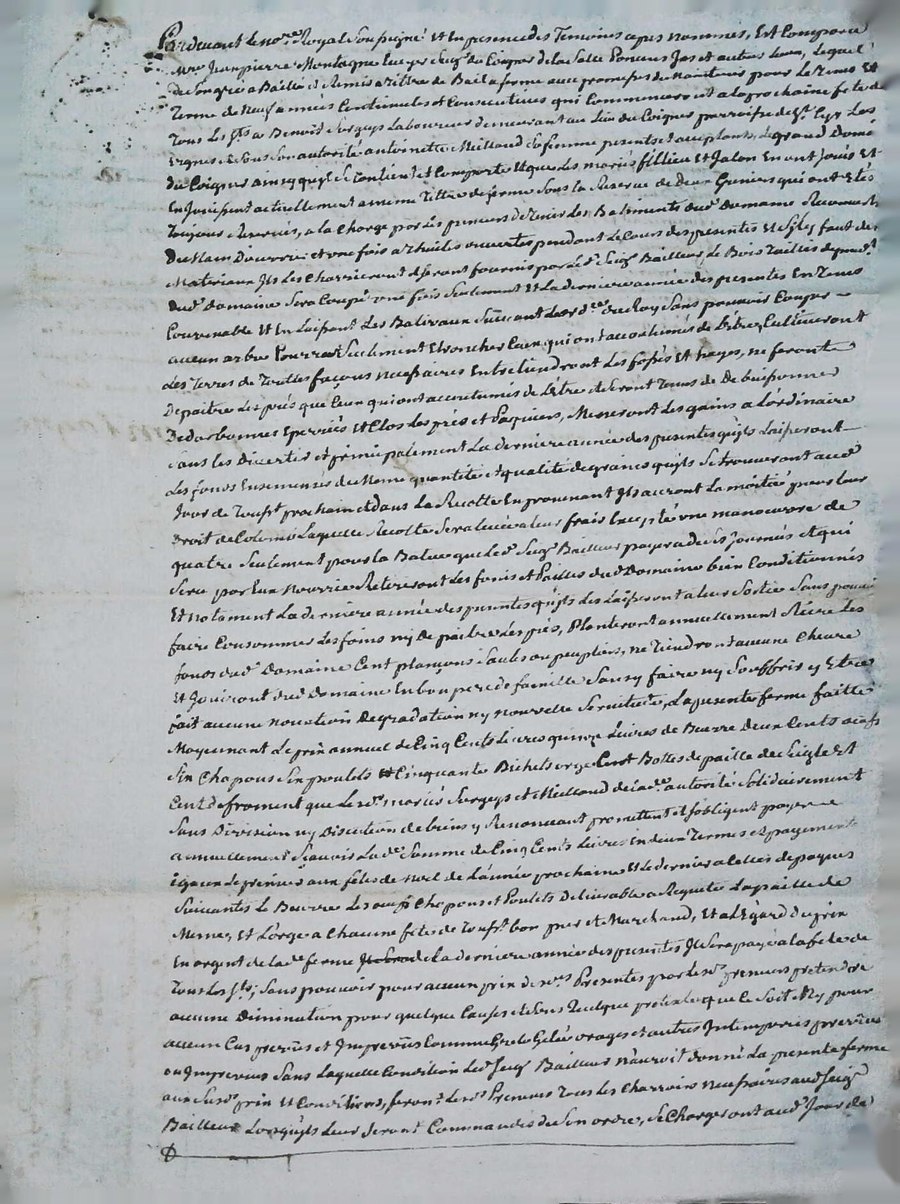 Pardevant le no.re Royal Soussigné et En presence des Temoins cy bas nommés, Est Comparu
M.re Jean pierre Montagne Ecuyer Seig.r du Coignet de la Salle Poncins Jas et autres lieux, Lequel
de Son gré a Baillé et Remis a tittre de Bail a ferme avec promesse de Maintenir pour le Tems Et
Terme de Neuf années Continuelles et Consecutives qui Commenceront a la prochaine fete de
Tous les S.ts a Benoit Sorgeys Laboureur demeurant au Lieu du Coignet parroisse de S.t Cyr Les
Vignes et de Sous Son autorité antoinette Meilland Sa femme presents et acceptants, Le grand Domé
du Coignet ainsy qu'il Se Contient et Comporte et que les mariés fillieu Et Jalon En ont Jouis Et
En Jouissent actuellement a meme Tittre de ferme Sous la Reserve de deux Greniers qui ont Etés
Toujours Reservés, a la Charge par les preneurs de Tenir Les Batiments dud. Domaine Recouverts
De Main D'œuvre et une fois a Thuiles ouvertes pendant le Cours des presentes Et S'il y faut des
Materiaux Ils Les Charrieront Et Seront fournis par Led. Seig.r Bailleur, Le Bois Taillis depend.t
Dud. Domaine Sera Coupé une fois Seulement Et La derniere année des presentes En Tems
Convenable Et En Laissant Les Balivaux Suivant L'ord.ce du Roy Sans pouvoir Couper
aucun arbre Pourront Seulement Etroncher Ceux qui ont accoutumés de L'être, Cultiveront
Les Terres de Touttes façons necessaires Entretiendront Les fossés Et hayes, ne feront
Depaitre Les prés que Ceux qui ont accoutumés de L'être et Seront Tenus de De buissonner
De darbonner Eperrier Et Clos Les prés et Paquiers, Meneront Les gains a L'ordinaire
dans les Divertis et principalement La derniere année des presentes qu'ils Laisseront
Les fonds Ensemencés de Meme quantité et qualité de grains qu'ils Se trouveront aud.
Jour de Touss.t prochain Et dans La Recolte En provenant Ils auront La moitié pour leur
Droit de Colonie Laquelle Recolte Sera levée a leurs frais Excepté une manœuvre de
quatre Seulement pour la Batue que Led. Seig.r Bailleur payera de Ses journées Et qui
Sera par Eux Nourrie Retireront Les foins et Pailles dud. Domaine bien Conditionnés
Et notament La derniere année des presentes qu'ils Les Laisseront a leur Sortie Sans pouvoir
faire Consommer Les foins ny De paitre Les prés, Planteront annuellement Riere Les
fonds dud. Domaine Cent plançons Saules ou peupliers, ne Tiendront aucune Chevre
Et Jouiront dud. Domaine En bon pere de famille Sans y faire ny Souffrir y Etre
fait aucune novation Degradation ny nouvelle Servitude, La presente ferme faitte
Moyennant Le prix annuel de Cinq Cents Livres quinze Livres de Beurre Deux Cents œufs
Six Chapons Six poulets Et Cinquante Bichets orge Cent Bottes de paille de Seigle Et
Cent de froment que Les d. mariés Sorgeys et Meilland de Lad. autorité Solidairement
Sans Division ny Discution de biens y Renonceant promettent et S'obligent payer
annuellement Sçavoir La d. Somme de Cinq Cents Livres En deux Termes et payements
Egaux Le premier aux fetes de Noel de l'année prochaine Et Le dernier a Celles de paques
Suivantes Le Beurre Les œufs Chapons et Poulets delivrable a Requete La paille de
Meme, Et L'orge a Chacune fete de Touss.t bon pur et Marchand, Et a L'Egard du prix
En argent de la d. ferme de La derniere année des presentes Il Sera payé a la fete de
Tous Les S.ts; Sans pouvoir pour aucun prix de Presentes par Les d. preneurs pretendre
aucune Diminution pour quelque Cause et Sous quelque pretexte que Ce Soit Et Ny pour
aucun Cas prevus et Imprevus Comme Grele Gelée orages et autres Intemperies prevues
ou Imprevues Sans Laquelle Condition Led. Seig.r Bailleur N'auroit donné La presente ferme
aux Susd. prix Et Conditions, feront Les d. Preneurs Tous les Charrois necessaires aud. Seig.r
Bailleur Lorsqu'ils Leur Seront Commandés de Son ordre, Se Chargeront aud. Jour de